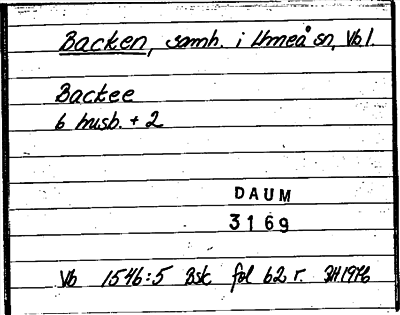 Backen, samh. i Umeå sn, Vbl.
Backee
6 husb. + 2
DAUM
3169
Vb 1546:5 Bsk fol 62 r. 3H1976